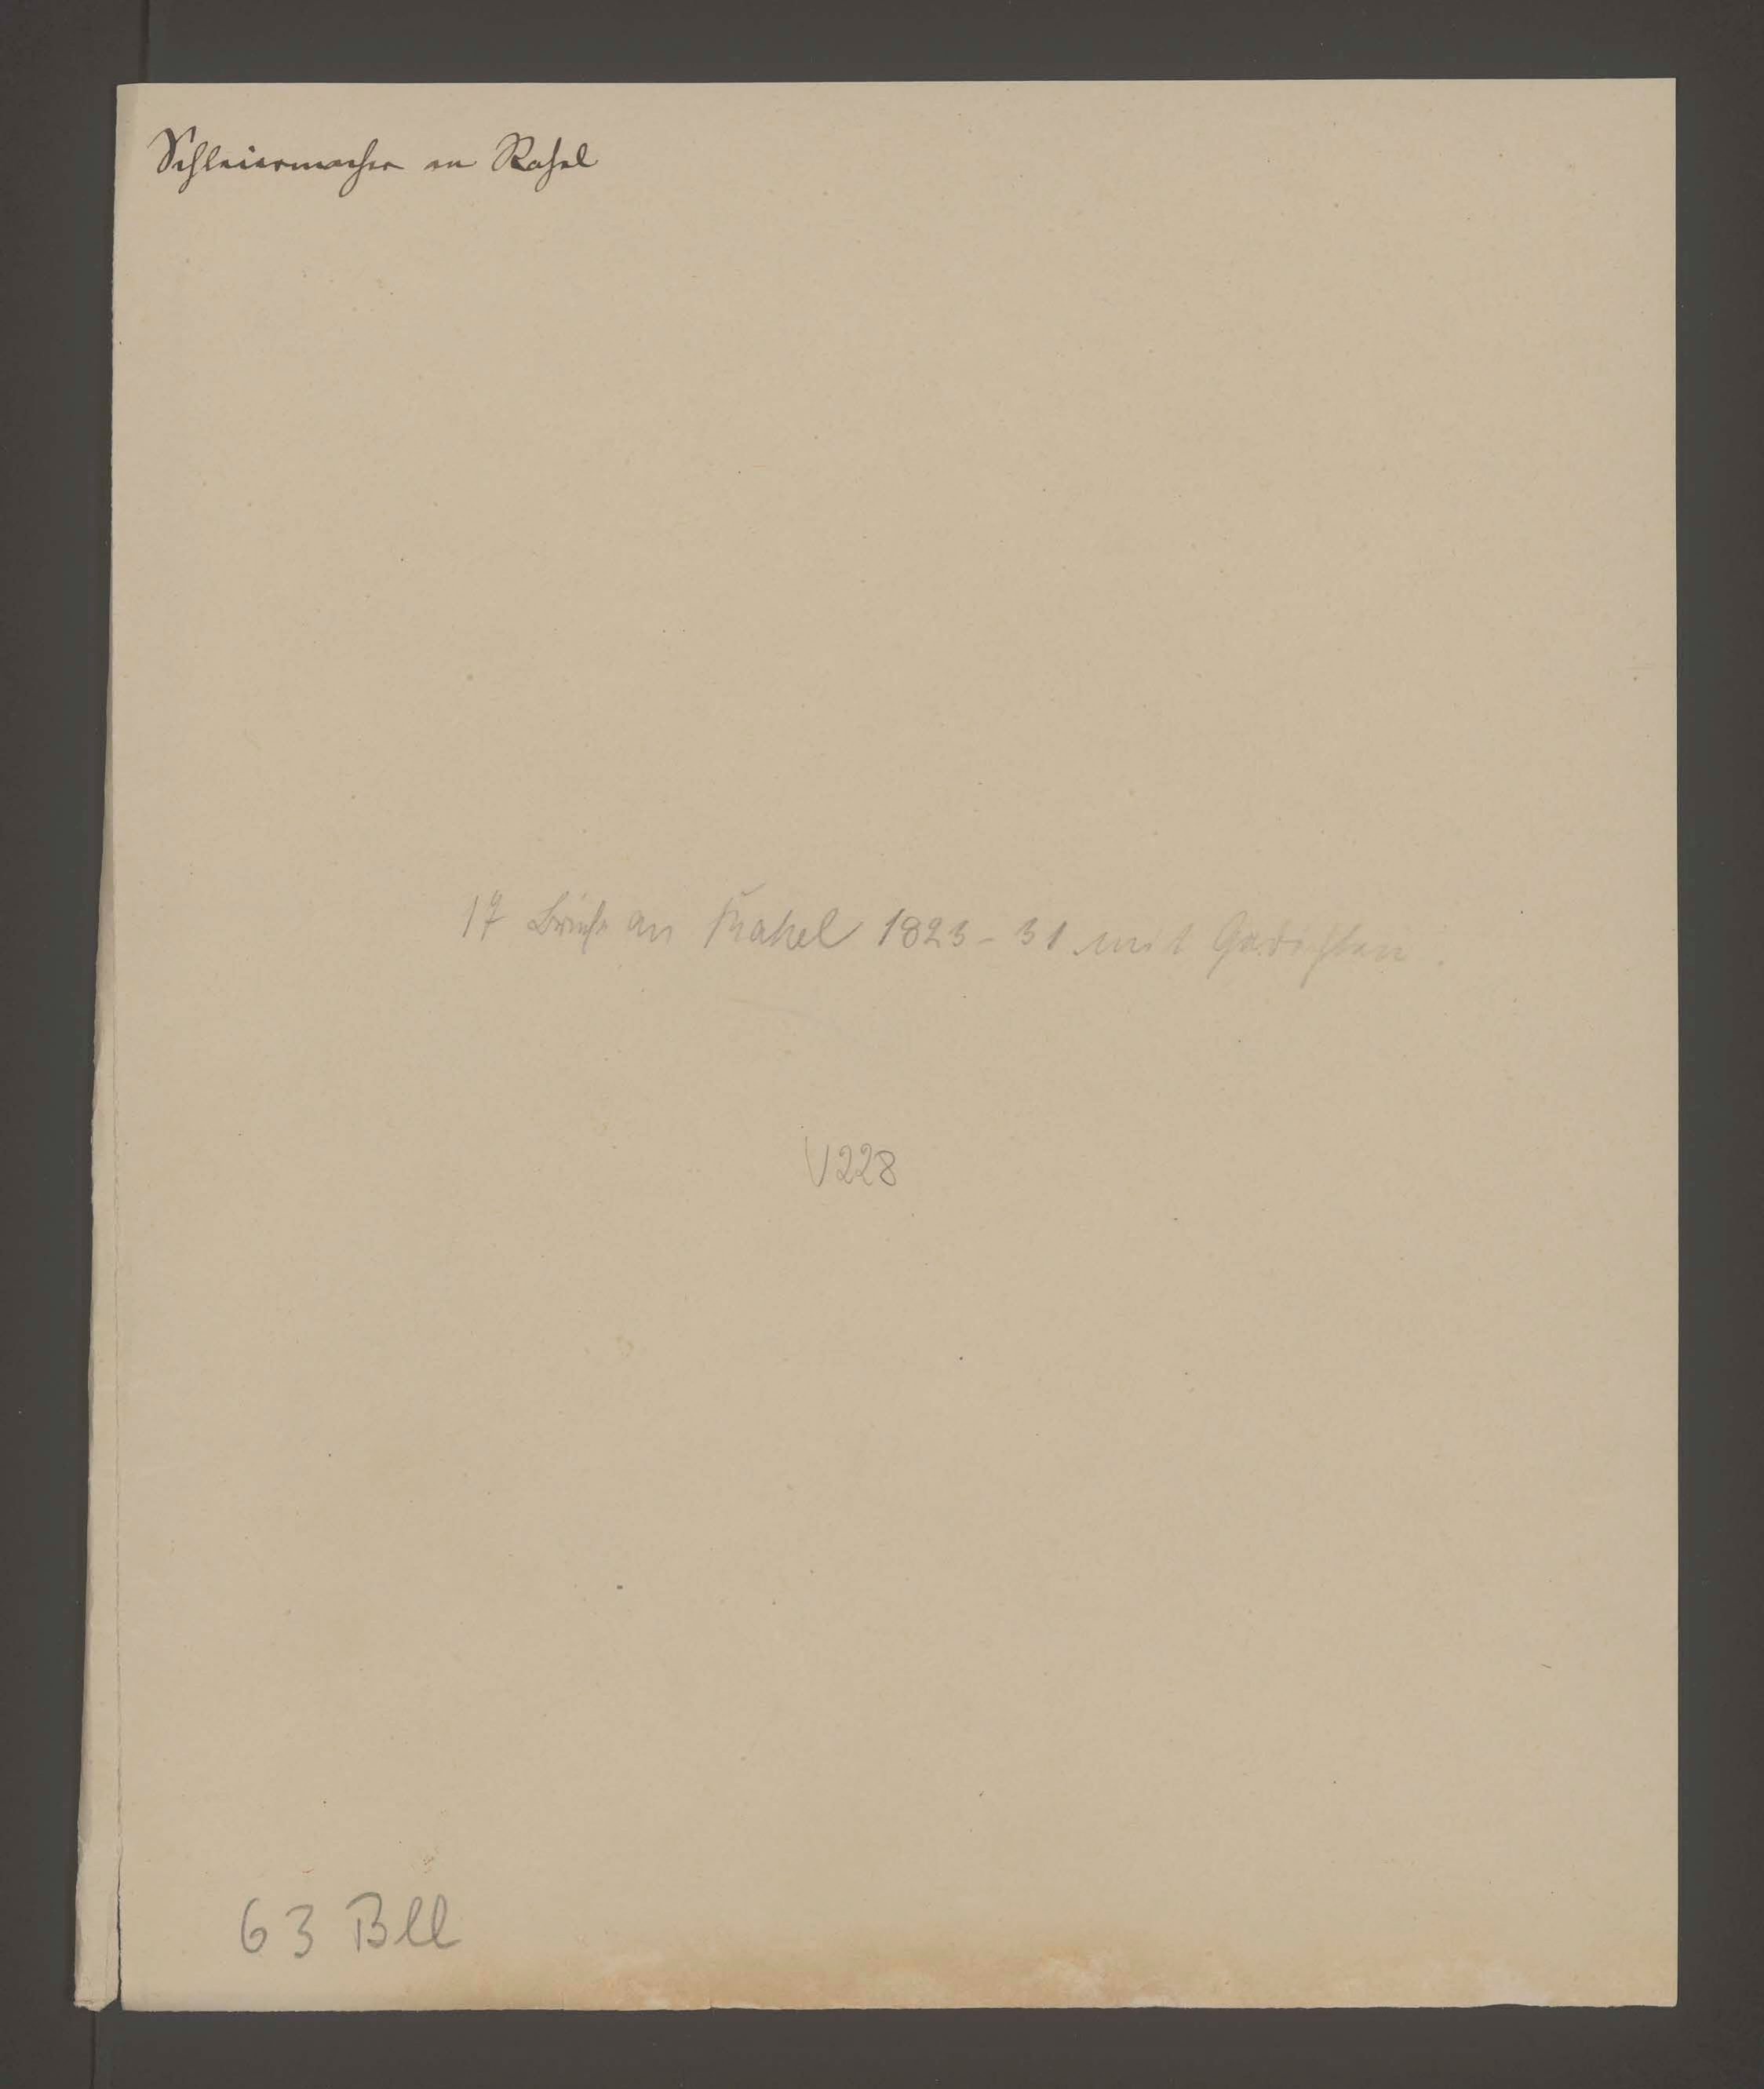 Schleiermacher an Rahel
17 Briefe an Rahel 1823 - 31 mit Gedichten.
V228
63 Bll